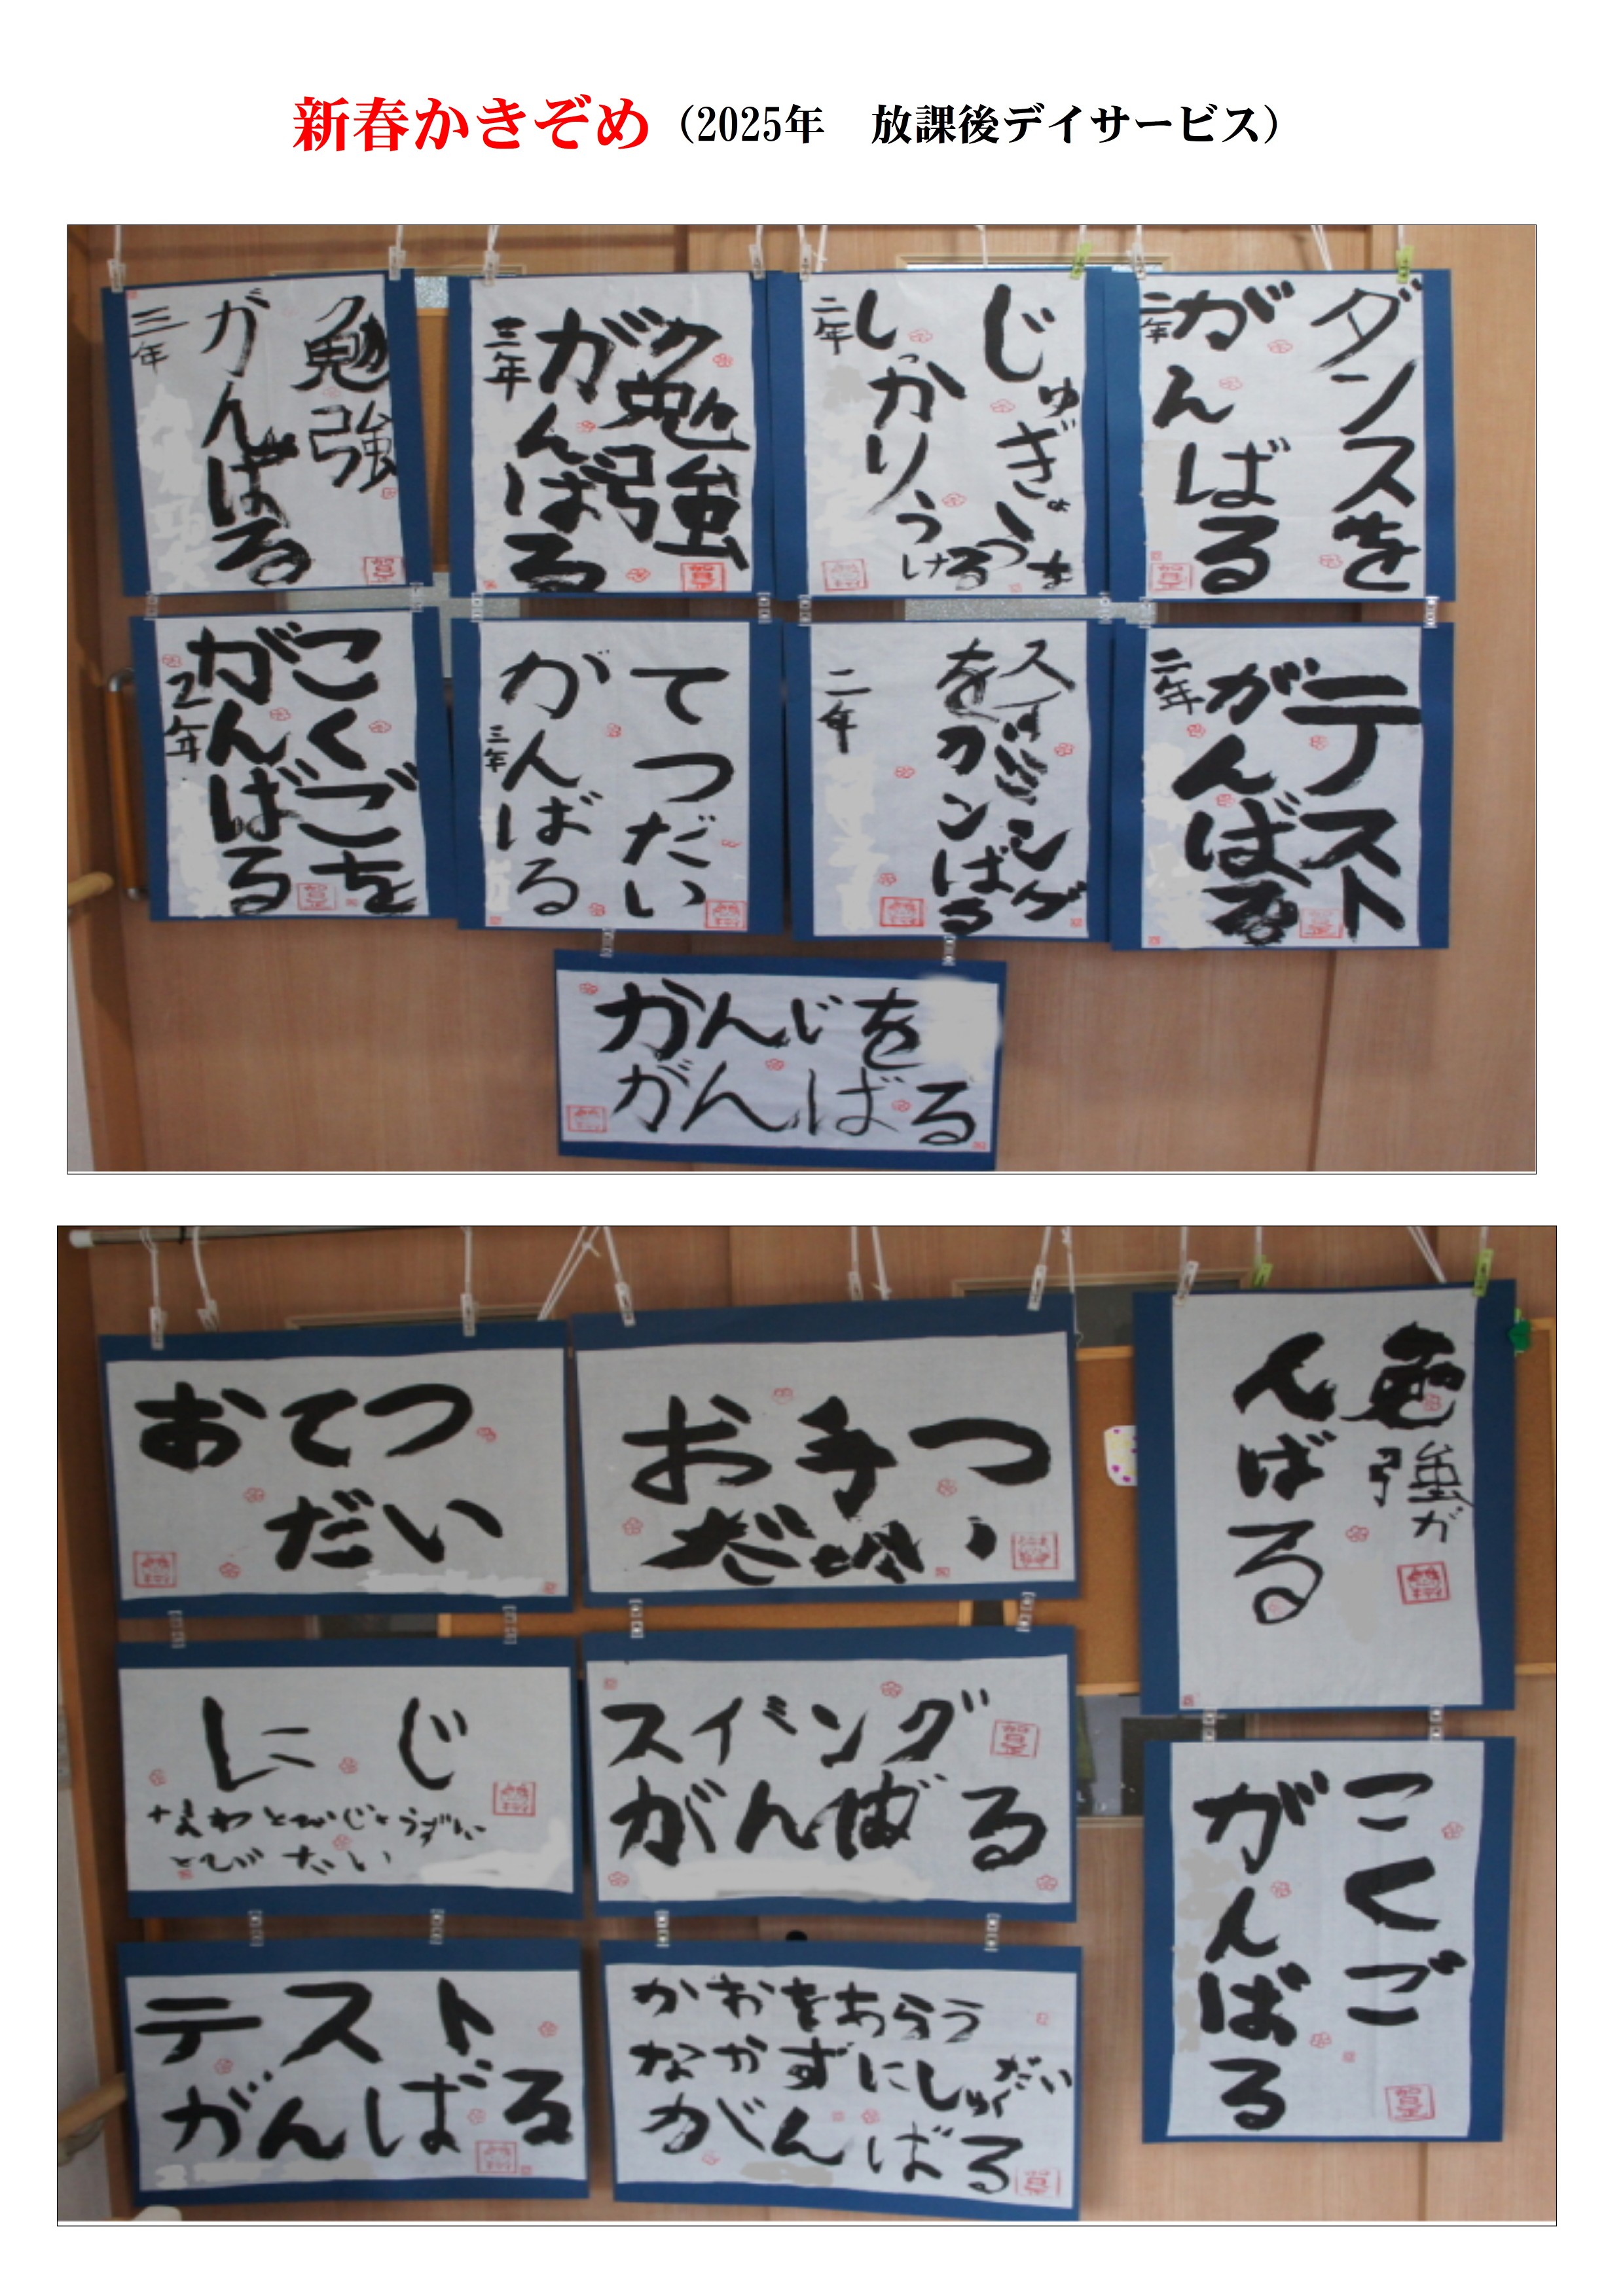 新春かきぞめ（2025年　放課後デイサービス）
ダンスを
がんばる
二年
じゅぎょうを
しっかりう
ける
二年
勉強
がんばる
三年
勉強
がんばる
三年
テスト
がんばる
二年
スイミング
をガンばる
二年
てつだい
がんばる
三年
こくごを
がんばる
2年
かんじを
がんばる
おてつ
だい
お手つ
だい
勉強ガ
んばる
にじ
なわとびじょうずに
とびたい
スイミング
がんばる
こくご
がんばる
テスト
がんばる
かおをあらう
なかずにしゅくだい
がんばる